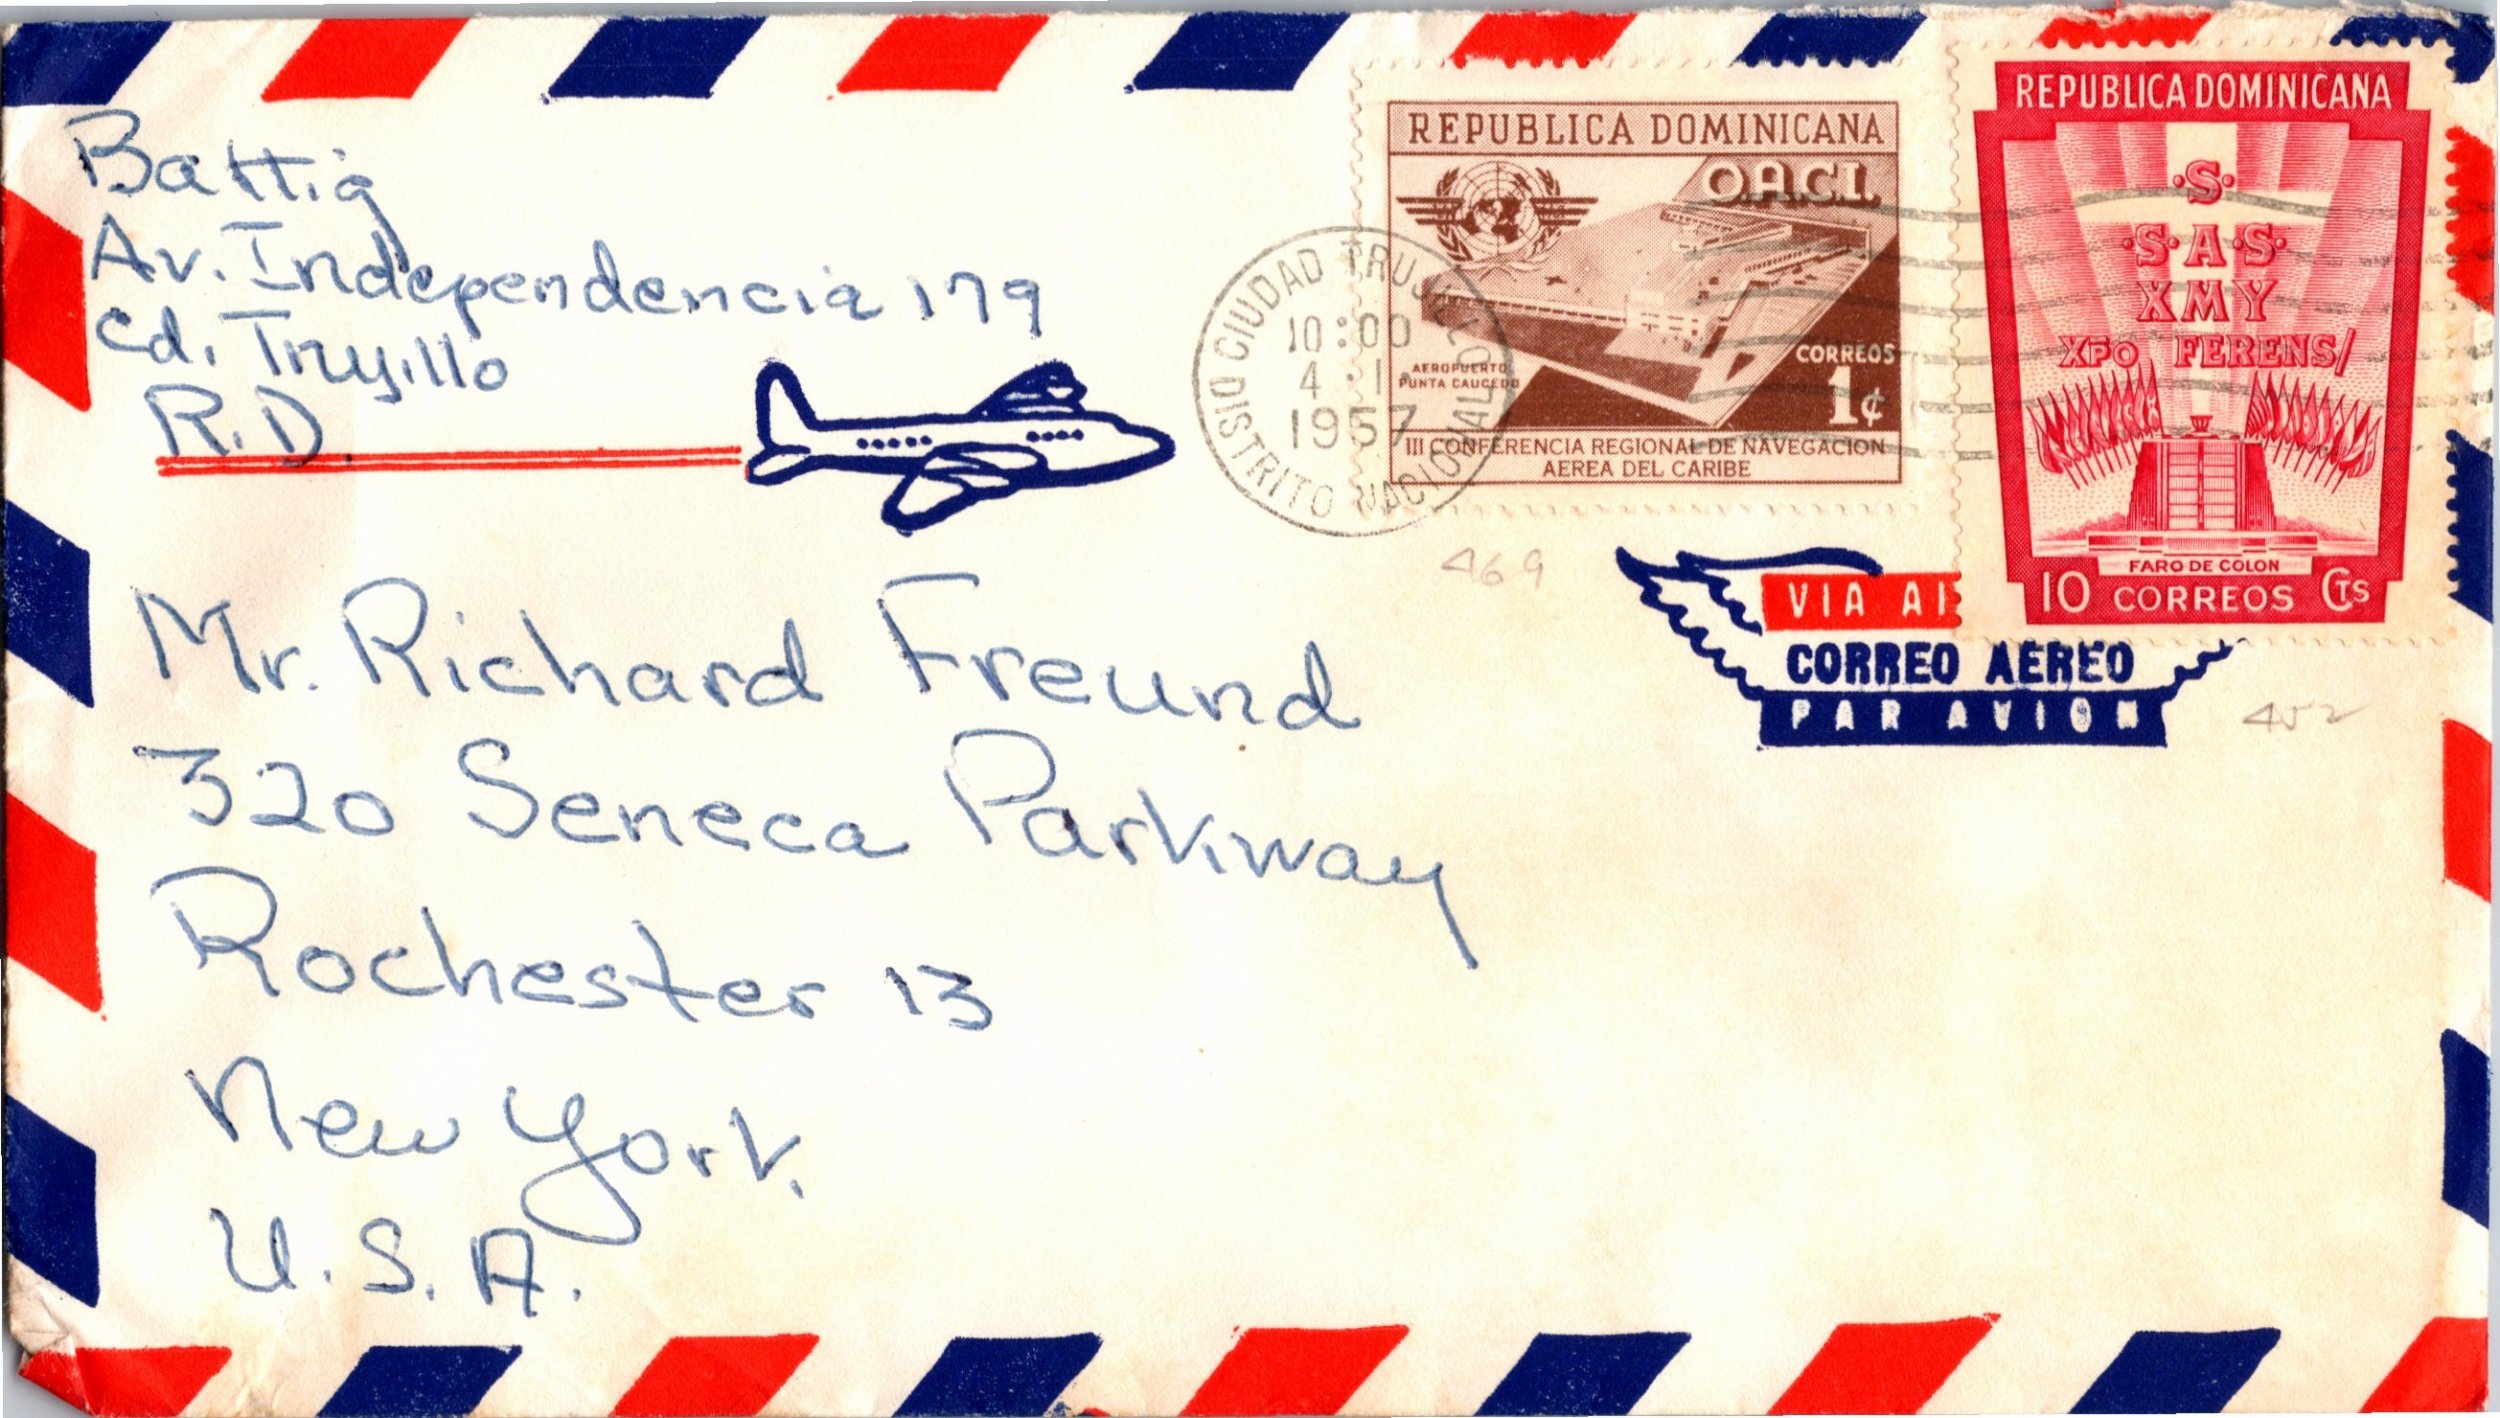 Battig
Av. Independencia 179
Cd. Trujillo
R.D.
REPUBLICA DOMINICANA
O.A.C.I.
AEROPUERTO
PUNTA CAUCEDO
CORREOS
1¢
III CONFERENCIA REGIONAL DE NAVEGACION
AEREA DEL CARIBE
REPUBLICA DOMINICANA
·S·
·S·A·S·
XMY
XPO FERENS/
FARO DE COLON
10 CORREOS CTS
CIUDAD TRUJILLO
10:00
4·1·
1957
DISTRITO NACIONAL
469
VIA AI
CORREO AEREO
PAR AVION
452
Mr. Richard Freund
320 Seneca Parkway
Rochester 13
New York.
U.S.A.